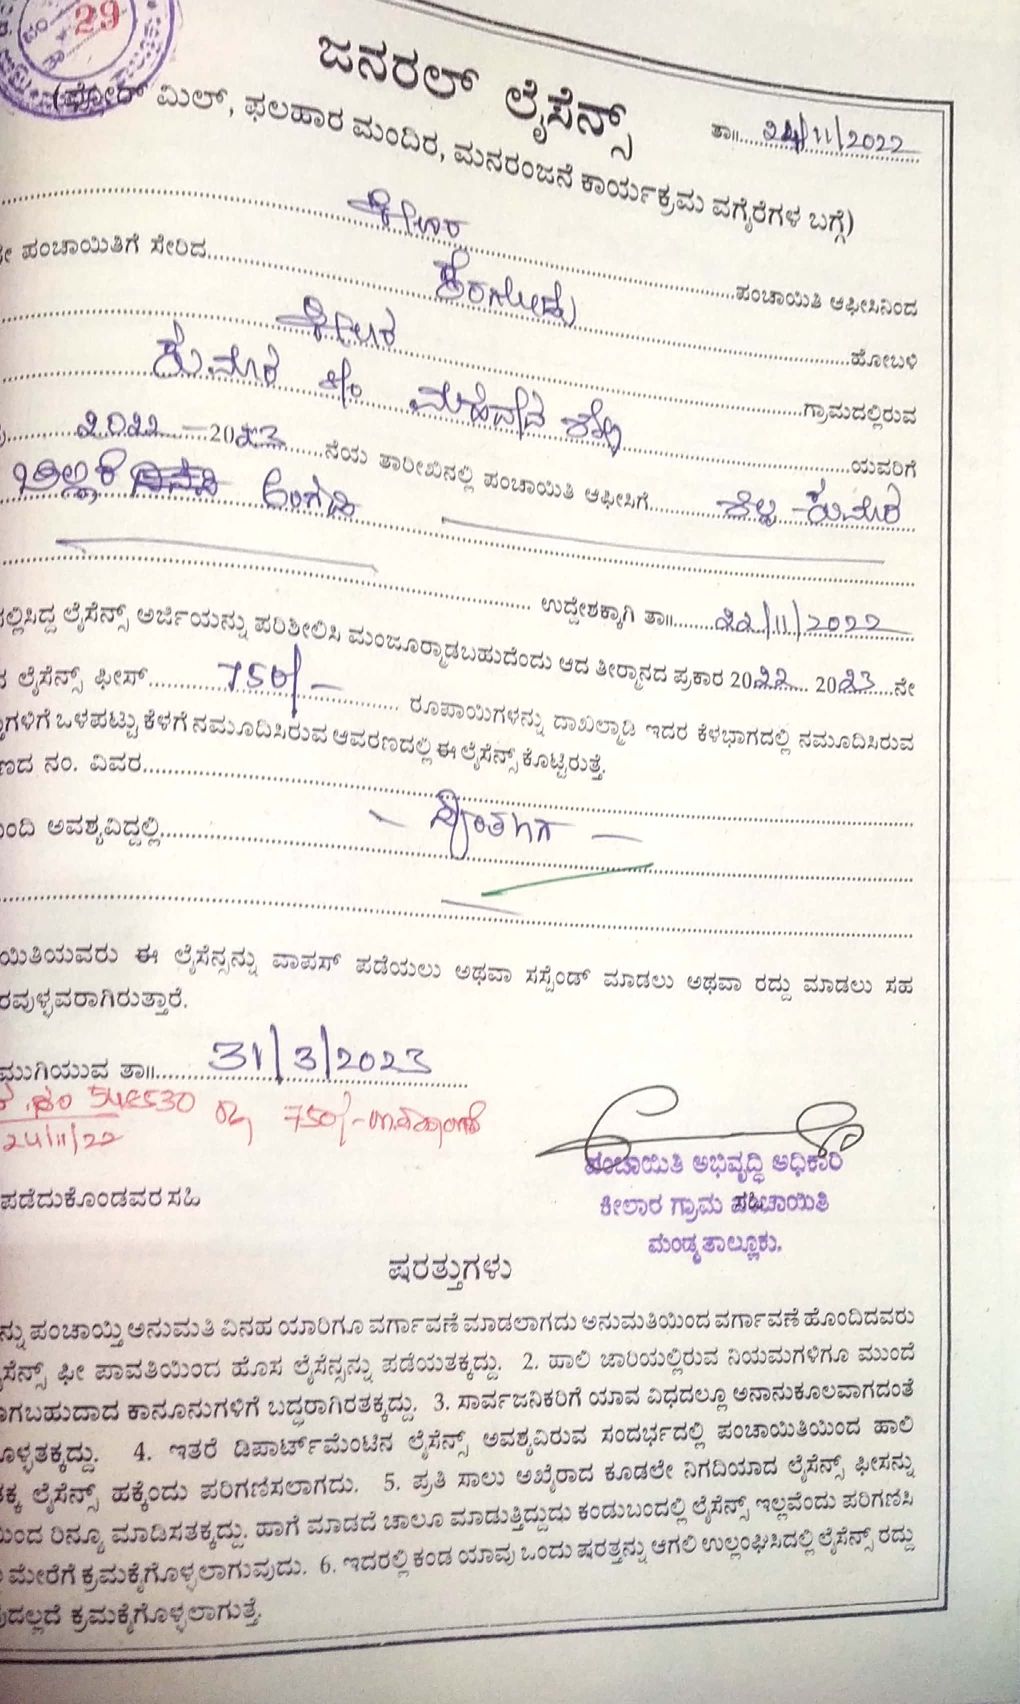 29
ಜನರಲ್ ಲೈಸೆನ್ಸ್
(ಫ್ಲೋರ್ ಮಿಲ್, ಫಲಹಾರ ಮಂದಿರ, ಮನರಂಜನೆ ಕಾರ್ಯಕ್ರಮ ವಗೈರೆಗಳ ಬಗ್ಗೆ)
ತಾ॥ 24/11/2022
ಕೀಲಾರ ಪಂಚಾಯಿತಿ ಆಫೀಸಿನಿಂದ
ಪಂಚಾಯಿತಿಗೆ ಸೇರಿದ ಕೆರಗೋಡು ಹೋಬಳಿ
ಕೀಲಾರ ಗ್ರಾಮದಲ್ಲಿರುವ
ಕುಮಾರ ಯವರಿಗೆ
2022 - 2023 ನೆಯ ತಾರೀಖಿನಲ್ಲಿ ಪಂಚಾಯಿತಿ ಆಫೀಸಿಗೆ
ಚಿಲ್ಲರೆ ಅಂಗಡಿ
ಉದ್ದೇಶಕ್ಕಾಗಿ ತಾ॥ 22/11/2022
ಲ್ಲಿಸಿದ್ದ ಲೈಸೆನ್ಸ್ ಅರ್ಜಿಯನ್ನು ಪರಿಶೀಲಿಸಿ ಮಂಜೂರ್‍ಮಾಡಬಹುದೆಂದು ಆದ ತೀರ್ಮಾನದ ಪ್ರಕಾರ 2022 2023 ನೇ
ಲೈಸೆನ್ಸ್ ಫೀಸ್ 750/- ರೂಪಾಯಿಗಳನ್ನು ದಾಖಲ್ಮಾಡಿ ಇದರ ಕೆಳಭಾಗದಲ್ಲಿ ನಮೂದಿಸಿರುವ
ಗಳಿಗೆ ಒಳಪಟ್ಟು ಕೆಳಗೆ ನಮೂದಿಸಿರುವ ಆವರಣದಲ್ಲಿ ಈ ಲೈಸೆನ್ಸ್ ಕೊಟ್ಟಿರುತ್ತೆ.
ಣದ ನಂ. ವಿವರ
ಂದಿ ಅವಶ್ಯವಿದ್ದಲ್ಲಿ - ಸ್ವಂತಗಿಗ -
ಯಿತಿಯವರು ಈ ಲೈಸೆನ್ಸನ್ನು ವಾಪಸ್ ಪಡೆಯಲು ಅಥವಾ ಸಸ್ಪೆಂಡ್ ಮಾಡಲು ಅಥವಾ ರದ್ದು ಮಾಡಲು ಸಹ
ರವುಳ್ಳವರಾಗಿರುತ್ತಾರೆ.
ಮುಗಿಯುವ ತಾ॥ 31/3/2023
750/-
24/11/22
ಪಂಚಾಯಿತಿ ಅಭಿವೃದ್ಧಿ ಅಧಿಕಾರಿ
ಪಡೆದುಕೊಂಡವರ ಸಹಿ
ಕೀಲಾರ ಗ್ರಾಮ ಪಂಚಾಯಿತಿ
ಮಂಡ್ಯ ತಾಲ್ಲೂಕು.
ಷರತ್ತುಗಳು
ನ್ನು ಪಂಚಾಯ್ತಿ ಅನುಮತಿ ವಿನಹ ಯಾರಿಗೂ ವರ್ಗಾವಣೆ ಮಾಡಲಾಗದು ಅನುಮತಿಯಿಂದ ವರ್ಗಾವಣೆ ಹೊಂದಿದವರು
ಸೆನ್ಸ್ ಫೀ ಪಾವತಿಯಿಂದ ಹೊಸ ಲೈಸೆನ್ಸನ್ನು ಪಡೆಯತಕ್ಕದ್ದು. 2. ಹಾಲಿ ಜಾರಿಯಲ್ಲಿರುವ ನಿಯಮಗಳಿಗೂ ಮುಂದೆ
ಗಬಹುದಾದ ಕಾನೂನುಗಳಿಗೆ ಬದ್ಧರಾಗಿರತಕ್ಕದ್ದು. 3. ಸಾರ್ವಜನಿಕರಿಗೆ ಯಾವ ವಿಧದಲ್ಲೂ ಅನಾನುಕೂಲವಾಗದಂತೆ
ೊಳ್ಳತಕ್ಕದ್ದು. 4. ಇತರೆ ಡಿಪಾರ್ಟ್‌ಮೆಂಟಿನ ಲೈಸೆನ್ಸ್ ಅವಶ್ಯವಿರುವ ಸಂದರ್ಭದಲ್ಲಿ ಪಂಚಾಯಿತಿಯಿಂದ ಹಾಲಿ
ತಕ್ಕ ಲೈಸೆನ್ಸ್ ಹಕ್ಕೆಂದು ಪರಿಗಣಿಸಲಾಗದು. 5. ಪ್ರತಿ ಸಾಲು ಅಖೈರಾದ ಕೂಡಲೇ ನಿಗದಿಯಾದ ಲೈಸೆನ್ಸ್ ಫೀಸನ್ನು
ಯಿಂದ ರಿನ್ಯೂ ಮಾಡಿಸತಕ್ಕದ್ದು. ಹಾಗೆ ಮಾಡದೆ ಚಾಲೂ ಮಾಡುತ್ತಿದ್ದುದು ಕಂಡುಬಂದಲ್ಲಿ ಲೈಸೆನ್ಸ್ ಇಲ್ಲವೆಂದು ಪರಿಗಣಿಸಿ
ಮೇರೆಗೆ ಕ್ರಮಕೈಗೊಳ್ಳಲಾಗುವುದು. 6. ಇದರಲ್ಲಿ ಕಂಡ ಯಾವು ಒಂದು ಷರತ್ತನ್ನು ಆಗಲಿ ಉಲ್ಲಂಘಿಸಿದಲ್ಲಿ ಲೈಸೆನ್ಸ್ ರದ್ದು
ದಲ್ಲದೆ ಕ್ರಮಕೈಗೊಳ್ಳಲಾಗುತ್ತೆ.